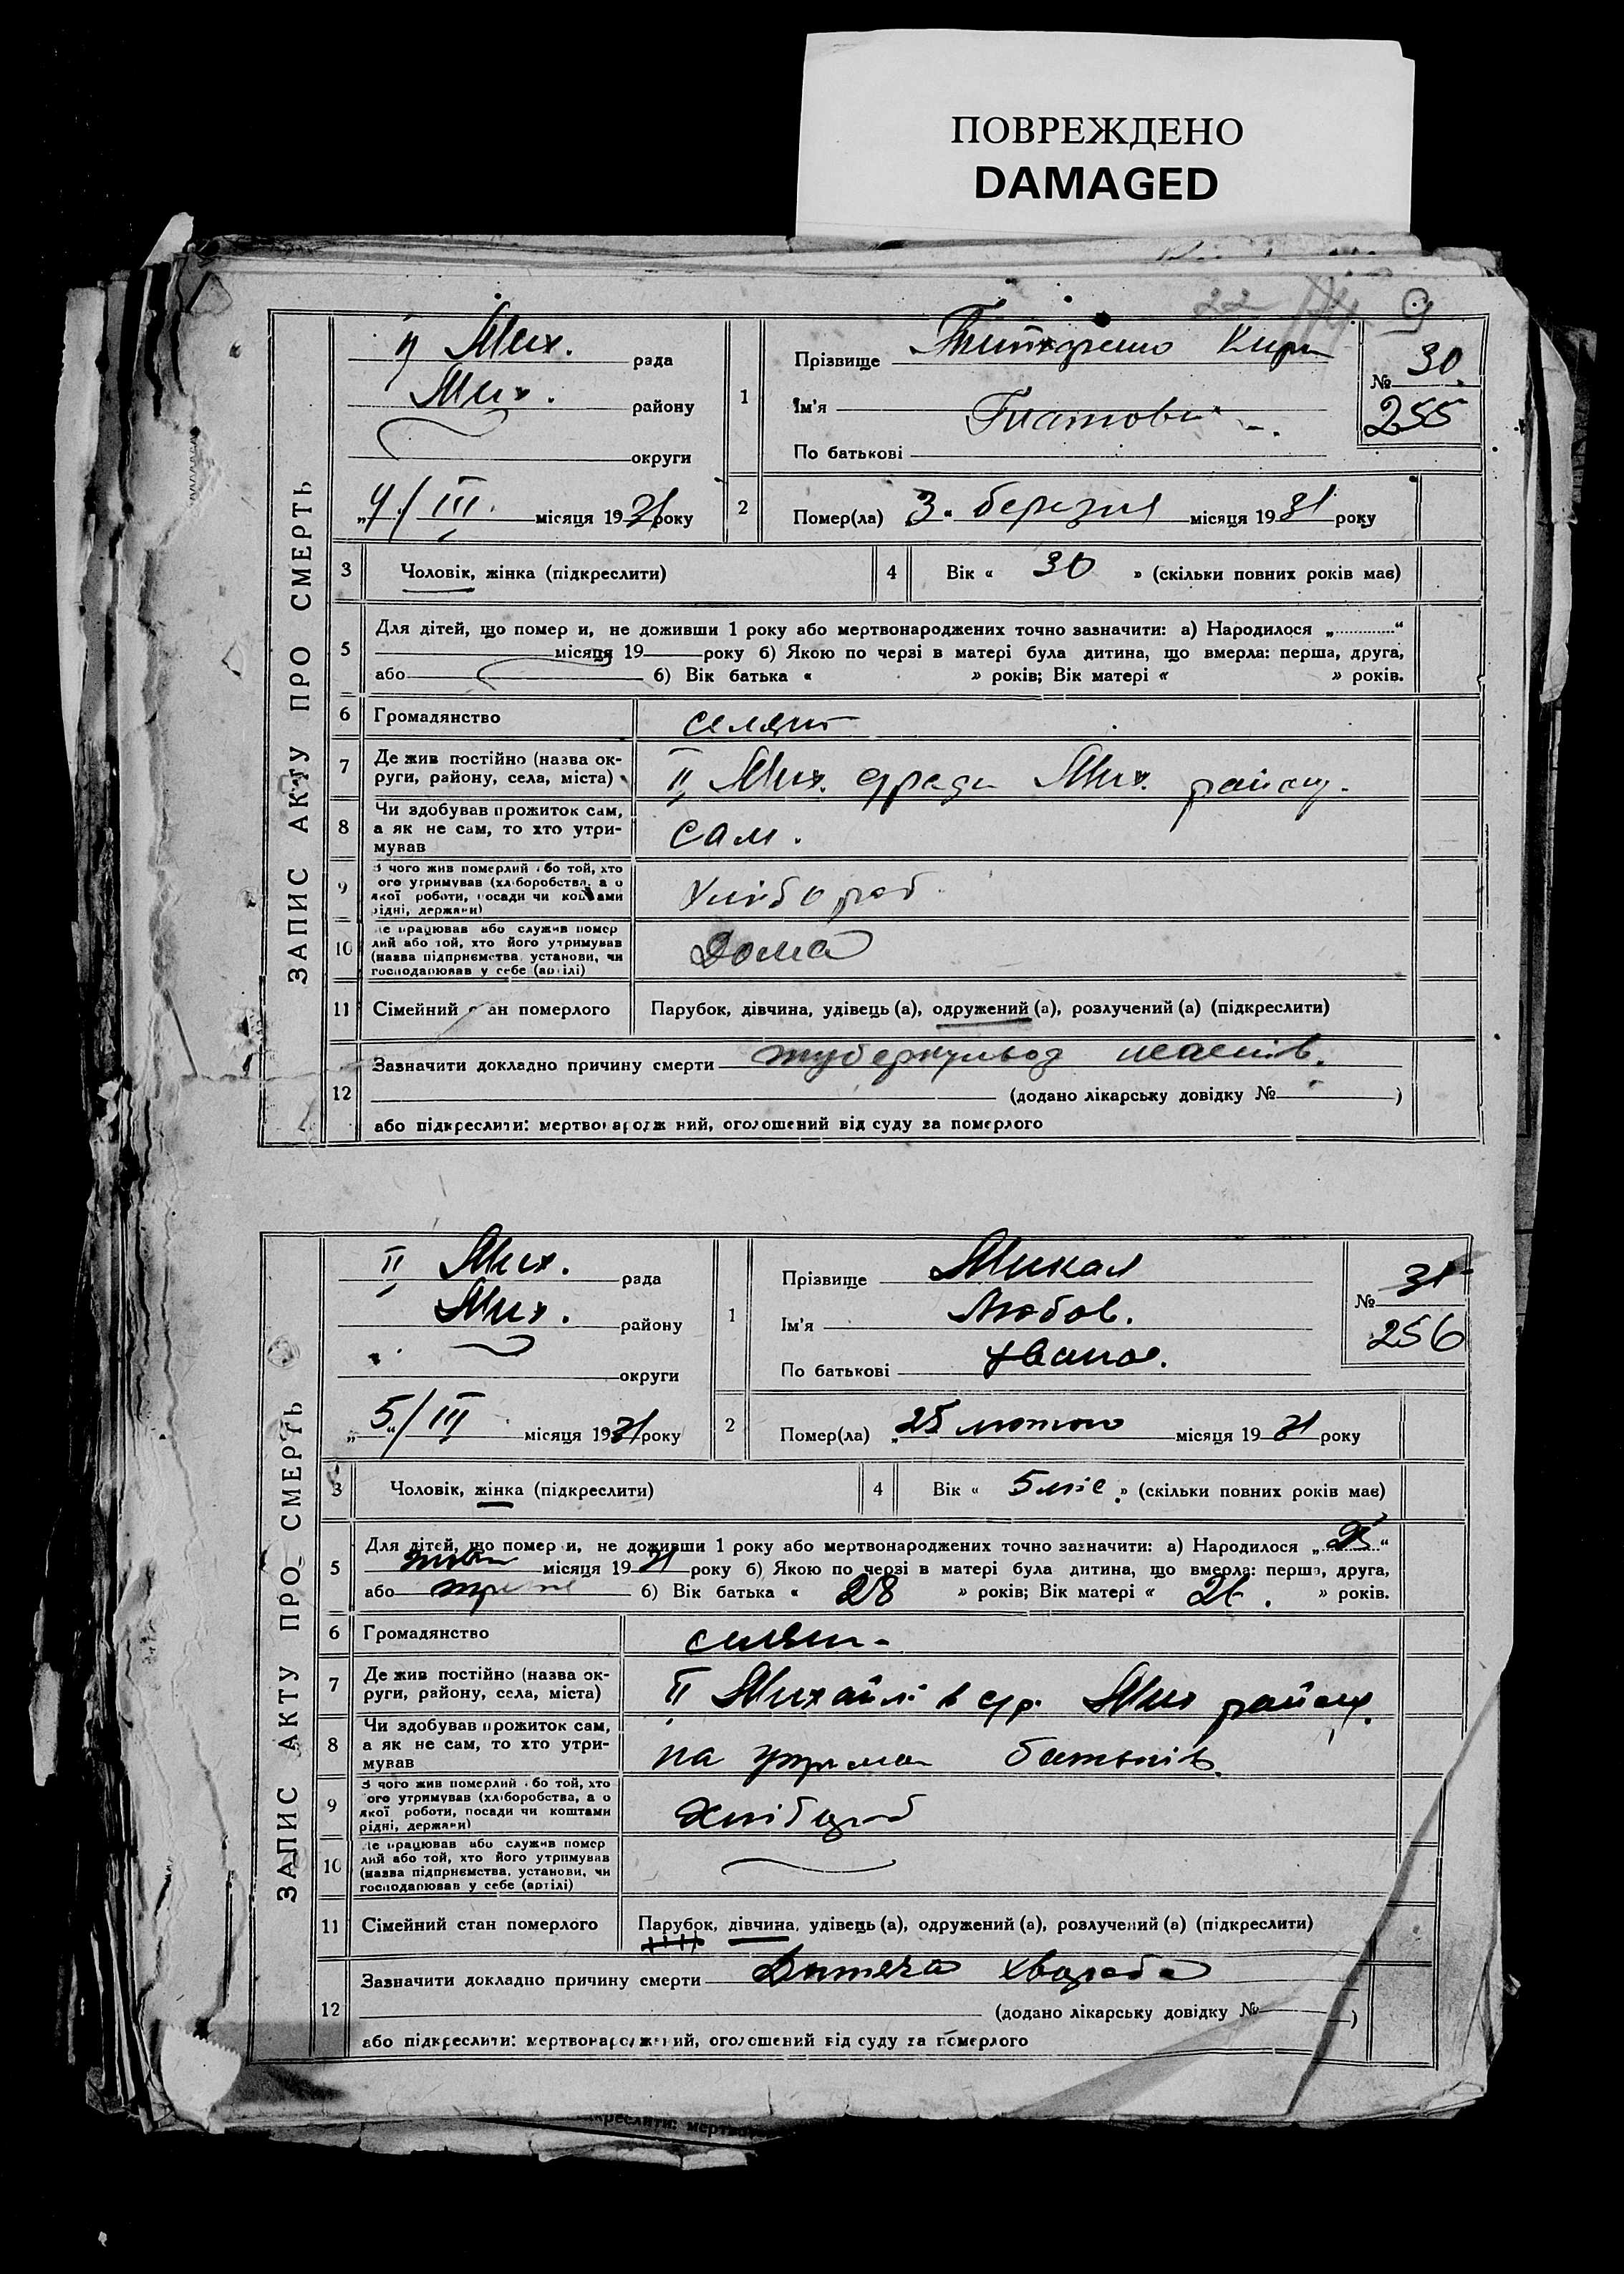 ПОВРЕЖДЕНО
DAMAGED
22 9
ЗАПИС АКТУ ПРО СМЕРТЬ
II Мих. рада
Мих. району
округи
"4/III. місяця 1931 року
1
Прізвище
Ім'я
По батькові
№ 30.
255
2
Помер(ла) „3“ березня місяця 1931 року
3 Чоловік, жінка (підкреслити)
4 Вік « 30 » (скільки повних років має)
5
Для дітей, що помер и, не доживши 1 року або мертвонароджених точно зазначити: а) Народилося „ “
місяця 19 року б) Якою по черзі в матері була дитина, що вмерла: перша, друга,
або б) Вік батька « » років; Вік матері « » років.
6 Громадянство селян
7
Де жив постійно (назва ок-
руги, району, села, міста)
II Мих. с/ради Мих. району.
8
Чи здобував прожиток сам,
а як не сам, то хто утри-
мував
сам.
9
З чого жив померлий бо той, хто
ого утримував (хліборобства, а о
якої роботи, посади чи коштами
рідні, держави)
хлібороб
10
е працював або служив помер
лий або той, хто його утримував
(назва підприємства, установи, чи
господарював у себе (артілі)
Дома
11 Сімейний с ан померлого
Парубок, дівчина, удівець (а), одружений (а), розлучений (а) (підкреслити)
12
Зазначити докладно причину смерти туберкульоз
(додано лікарську довідку № )
або підкреслити: мертвонародж ний, оголошений від суду за померлого
ЗАПИС АКТУ ПРО СМЕРТЬ
II Мих. рада
Мих. району
округи
„5“/III місяця 1931 року
1
Прізвище
Ім'я Любов.
По батькові Іванов.
№ 31
256
2
Помер(ла) „25 лютого місяця 1931 року
3 Чоловік, жінка (підкреслити)
4 Вік « 5 міс.» (скільки повних років має)
5
Для дітей, що помер и, не доживши 1 року або мертвонароджених точно зазначити: а) Народилося „ “
місяця 19 року б) Якою по черзі в матері була дитина, що вмерла: перша, друга,
або б) Вік батька « 28 » років; Вік матері « » років.
6 Громадянство селян.
7
Де жив постійно (назва ок-
руги, району, села, міста)
II Михайлів с/р. Мих району.
8
Чи здобував прожиток сам,
а як не сам, то хто утри-
мував
на утриман батьків.
9
З чого жив померлий бо той, хто
ого утримував (хліборобства, а о
якої роботи, посади чи коштами
рідні, держави)
хлібороб
10
е працював або служив помер
лий або той, хто його утримував
(назва підприємства, установи, чи
господарював у себе (артілі)
11 Сімейний стан померлого
Парубок, дівчина, удівець (а), одружений (а), розлучений (а) (підкреслити)
12
Зазначити докладно причину смерти Дитяча хвороба
(додано лікарську довідку № )
або підкреслити: мертвонароджений, оголошений від суду за померлого